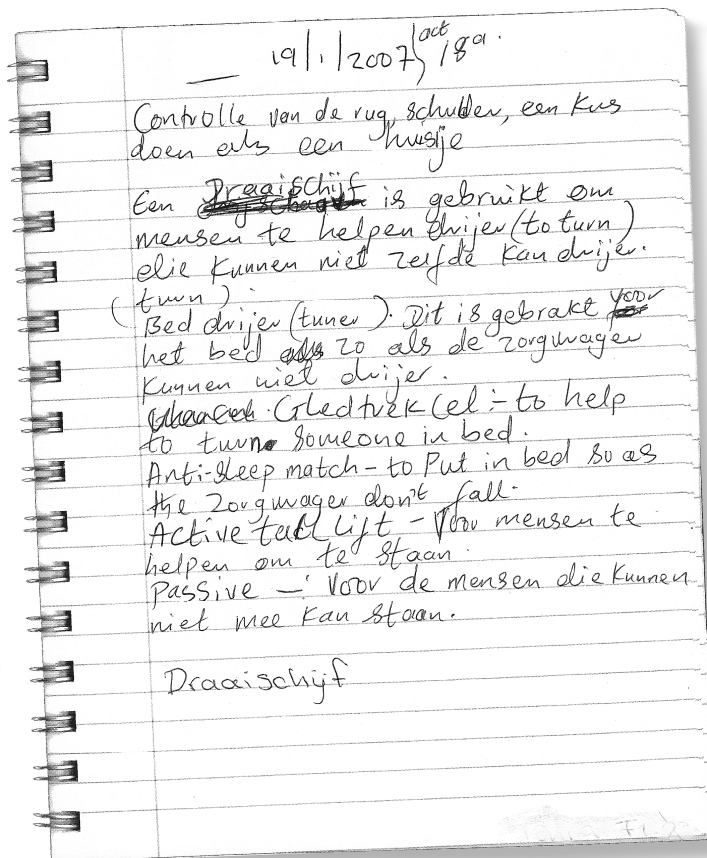 19/1/2007, act 18a.
Controlle van de rug, schulder, een kus
doen als een huisje
Een Draaischijf is gebruikt om
mensen te helpen drijer (to turn)
die kunnen niet zelfde kan drijer.
(turn)
Bed drijer (tuner). Dit is gebrakt voor
het bed zo als de zorgvrager
kunnen niet drijer.
:- to help
to turn someone in bed.
Anti-sleep match - to Put in bed so as
the zorgvrager don't fall.
Active Lift - Voor mensen te
helpen om te staan.
Passive - : Voor de mensen die kunnen
niet mee kan staan.
Draaischijf